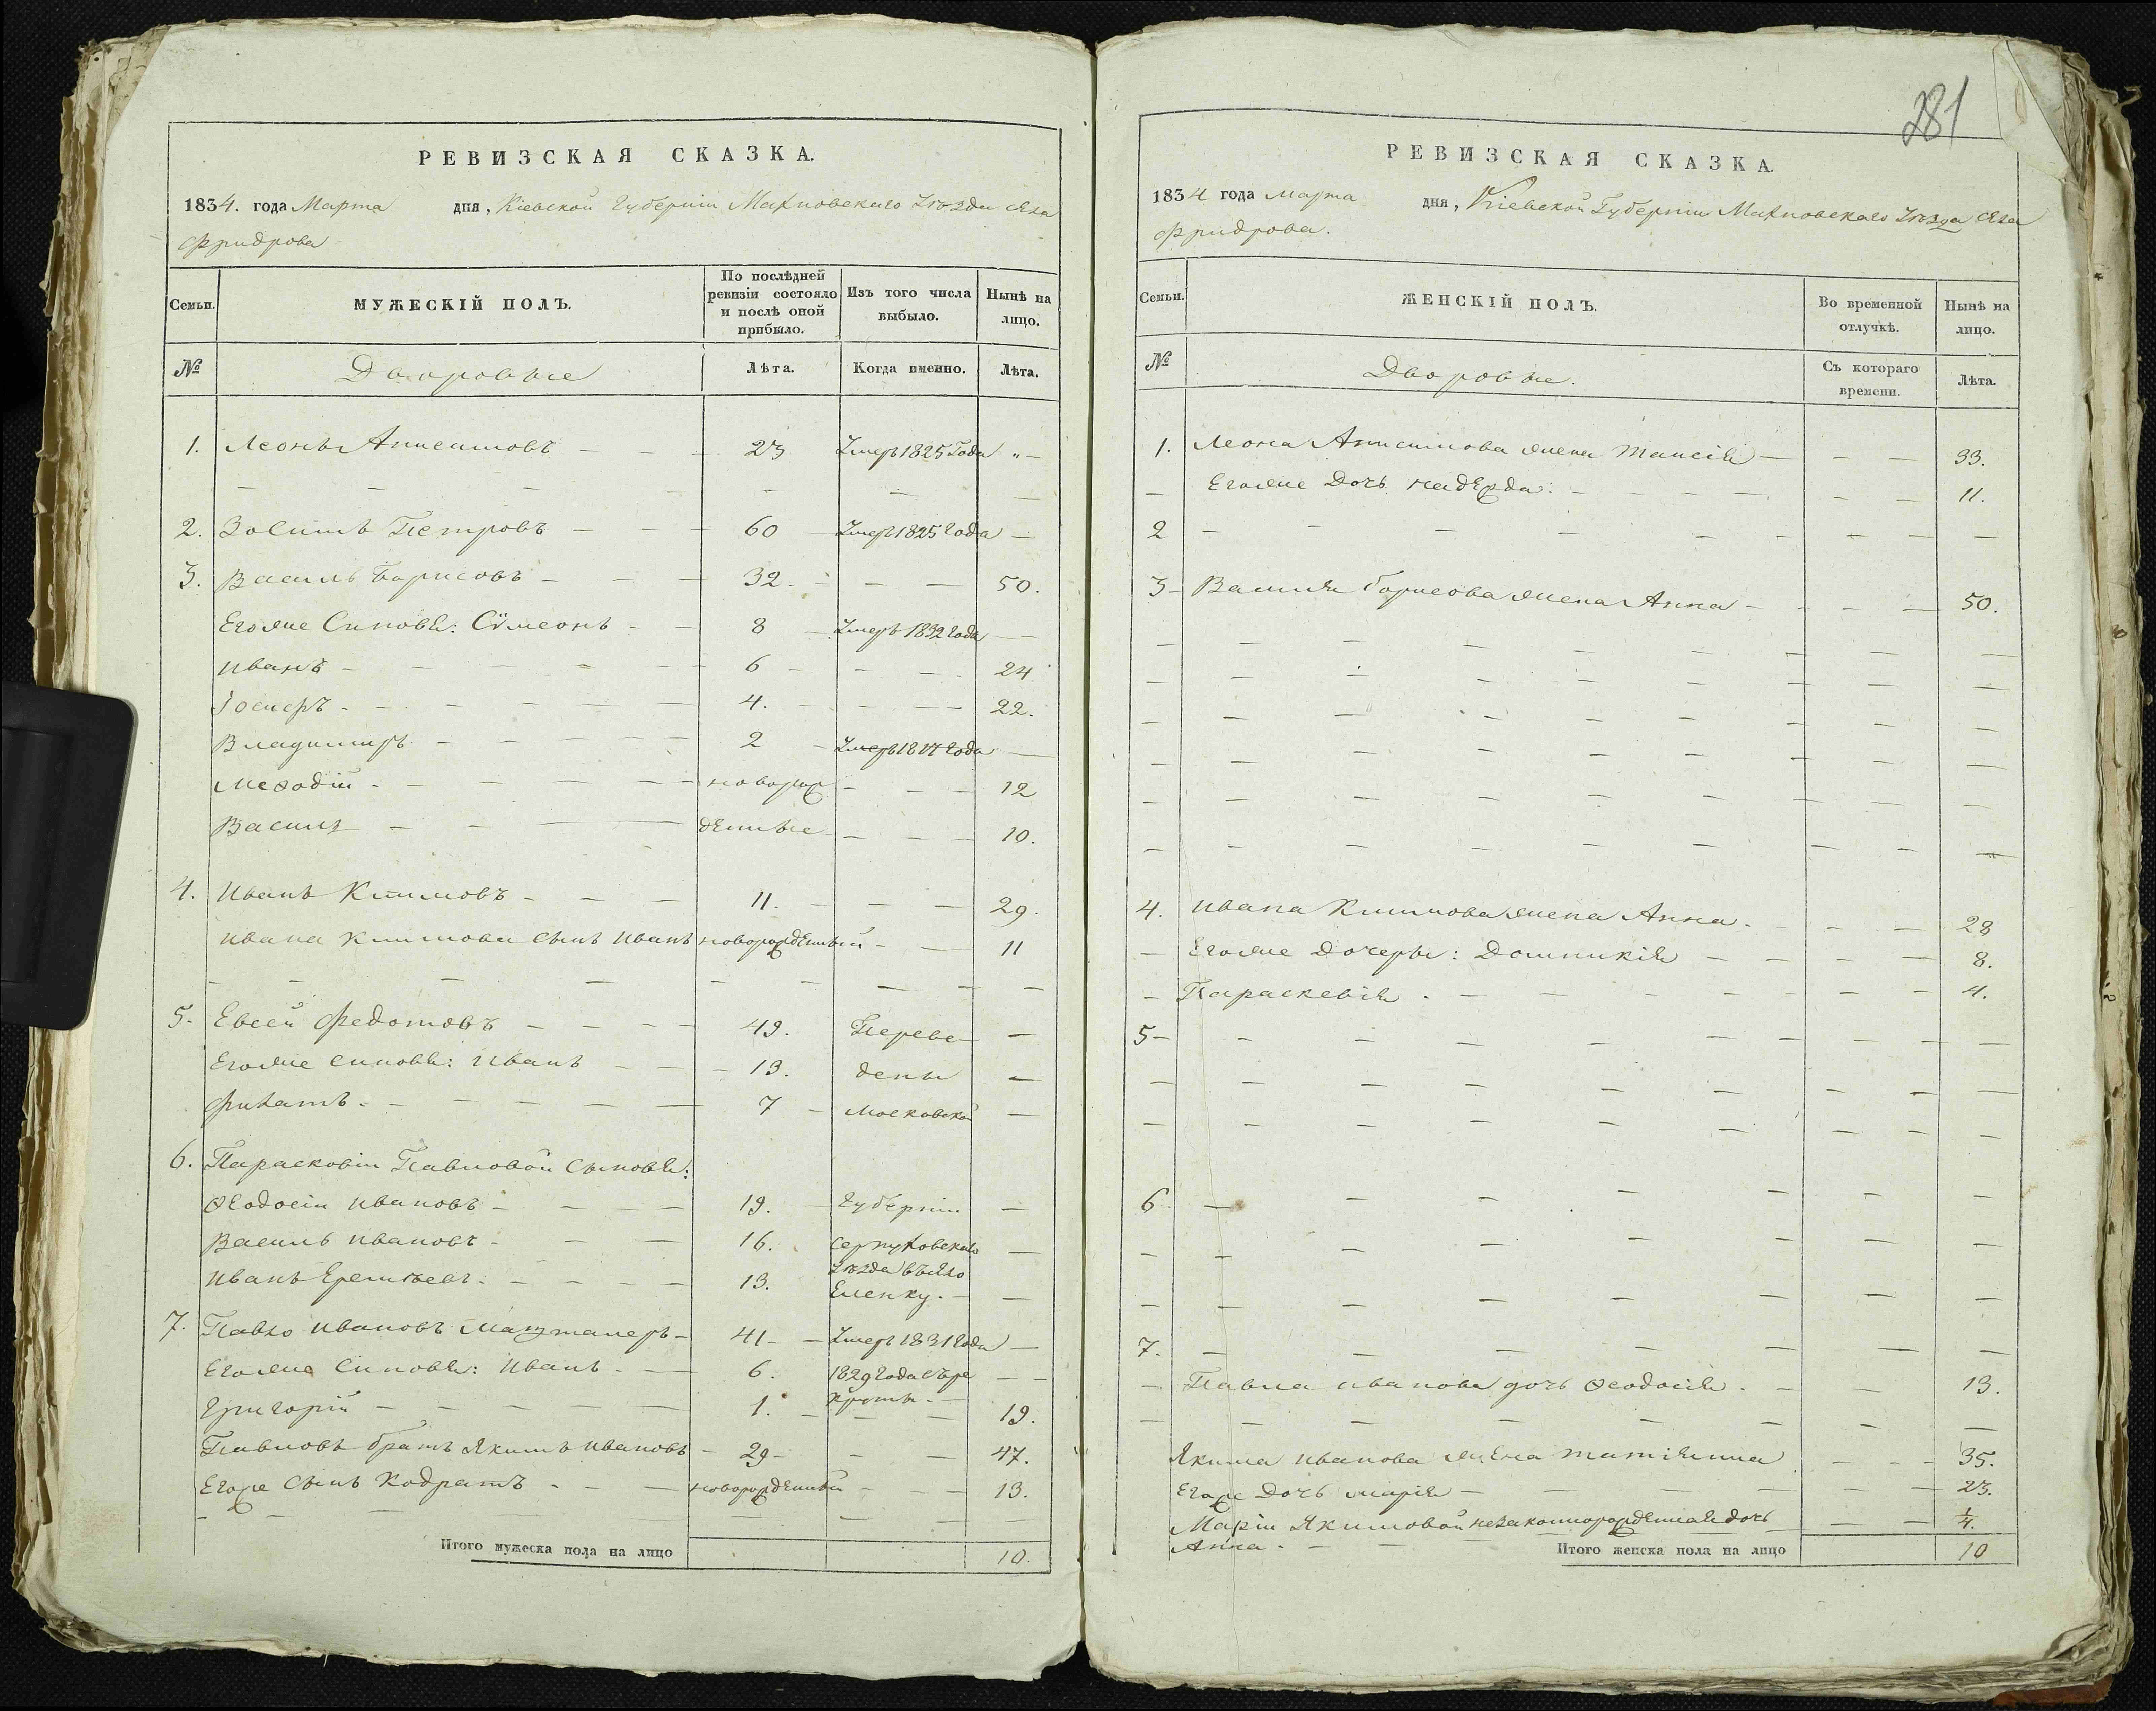 РЕВИЗСКАЯ СКАЗКА.
1834. года Марта дня, Кіевской Губерніи Махновскаго Уѣзда села
Фридрова
Семьи. МУЖЕСКІЙ ПОЛЪ. По послѣдней ревизіи состояло и послѣ оной прибыло. Изъ того числа выбыло. Нынѣ на лицо.
№ Дворовые Лѣта. Когда именно. Лѣта.
1. Леонъ Анисимовъ 23 Умеръ 1825 Года
2. Зосимъ Петровъ 60 Умеръ 1825 Года
3. Василь Борисовъ 32. 50.
Егоже Синовя: Сѵмеонъ 8 Умеръ 1832 Года
Иванъ 6 24
Іосифъ 4. 22.
Владимиръ 2 Умеръ 1817 Года
Меѳодій новорож 12
Василь денные 10.
4. Иванъ Климовъ 11. 29.
Ивана Климова сынъ Иванъ новорожденный 11
5. Евсей Федотовъ 49. Переве
Егоже Синовя: Иванъ 13. дены
Филатъ 7 Московской
6. Парасковіи Павловой Сыновя:
Ѳеодосій Ивановъ 19. Губерніи
Василь Ивановъ 16. Серпуховскаго
Иванъ Еремѣевъ 13. Уѣзда въ село
Еленку.
7. Павло Ивановъ 41 Умеръ 1831 Года
Егоже Синовя: Иванъ 6. 1829 Года въ ре
Григорій 1. круты 19.
Павловъ братъ Якимъ Ивановъ 29 47.
Егоже Сынъ Кодратъ новорожденный 13.
Итого мужеска пола на лицо 10.
281
РЕВИЗСКАЯ СКАЗКА.
1834 года Марта дня, Кіевской Губерніи Махновскаго Уѣзда села
Фридрова.
Семьи. ЖЕНСКІЙ ПОЛЪ. Во временной отлучкѣ. Нынѣ на лицо.
№ Дворовые. Съ котораго времени. Лѣта.
1. Леона Анисимова жена Таисія 33.
Егоже Дочь Надежда. 11.
2
3 Василя Борисова жена Анна 50.
4. Ивана Климова жена Анна. 28
Егоже Дочеры: Домникія 8.
Параскевія. 4.
5
6
7.
Павла Иванова дочь Ѳеодосія. 13.
Якима Иванова жена Татіянна 35.
Егоже Дочь Марія 23.
Маріи Якимовой незаконнорожденная дочь 1/4.
Анна.
Итого женска пола на лицо 10